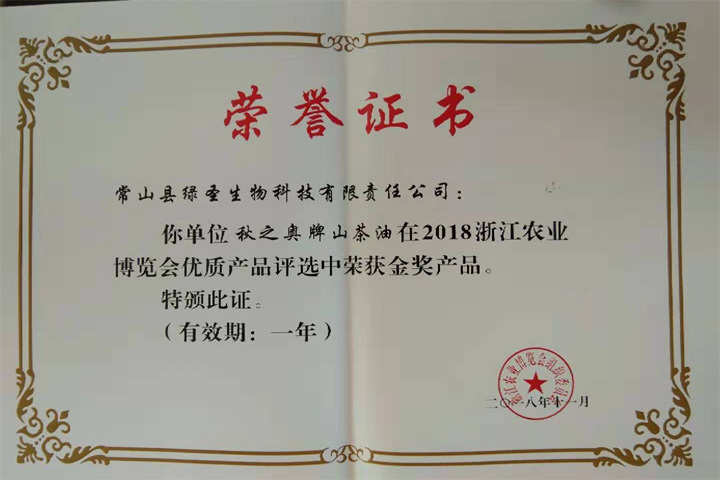 荣誉证书
常山县绿圣生物科技有限责任公司：
你单位秋之奥牌山茶油在2018浙江农业
博览会优质产品评选中荣获金奖产品。
特颁此证。
（有效期：一年）
浙江农业博览会组织委员会
二〇一八年十一月